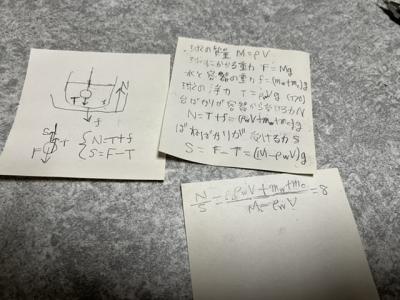 N
T
f
S
T
F
N=T+f
S=F-T
球の質量 M=ρV
球にかかる重力 F=Mg
水と容器の重力 f=(mw+mc)g
球の浮力 T=ρwVg
台ばかりが容器から受ける力N
N=T+f=(ρwV+mw+mc)g
ばねばかりが受ける力S
S=F-T=(M-ρwV)g
N/S=ρwV+mw+mc/M-ρwV=8